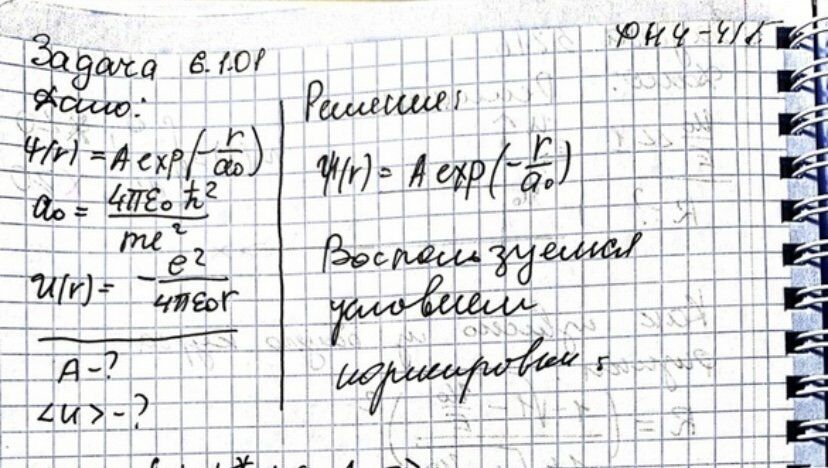 Задача 6.1.01
Дано:
ψ(r) = A exp(-r/a₀)
a₀ = 4πε₀ħ²/me²
U(r) = -e²/4πε₀r
A-?
<U>-?
Решение:
ψ(r) = A exp(-r/a₀)
Воспользуемся
условием
нормировки,